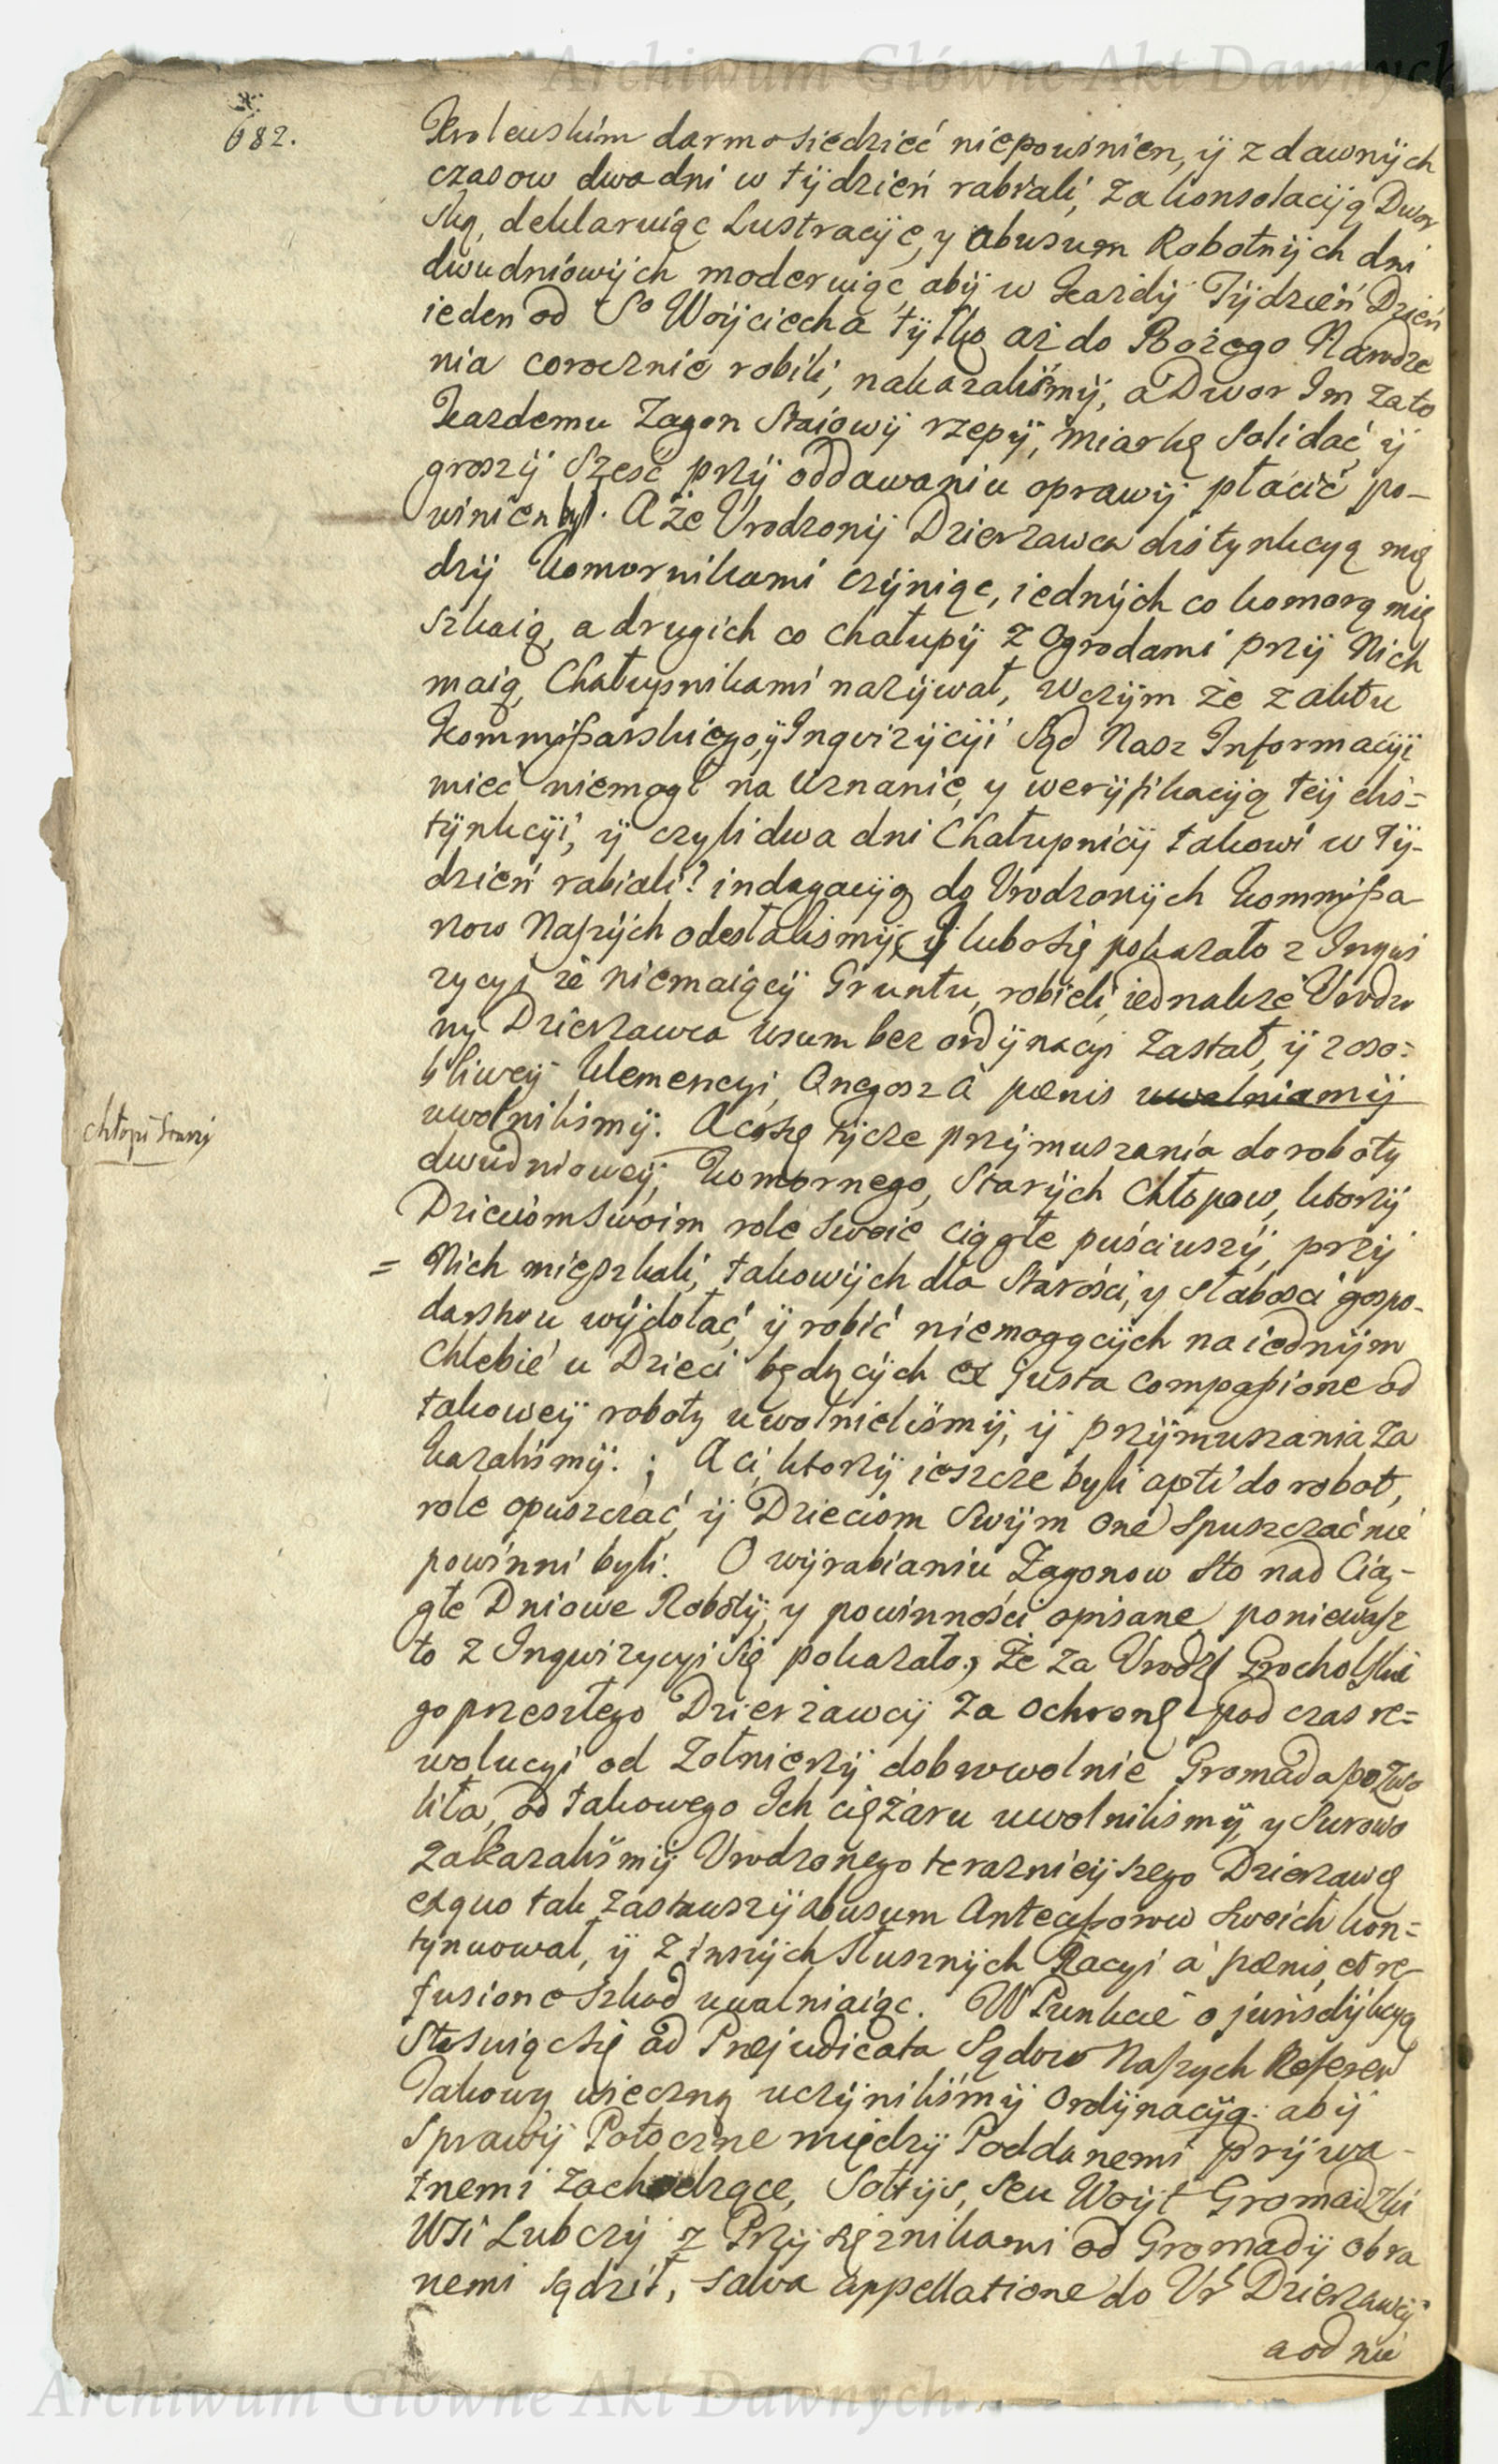 Archiwum Główne Akt Dawnych
682.
Krolewskim darmo siedzieć niepowinien, ÿ z dawnÿch
czasow dwa dni w tÿdzień rabiali, za konsolacÿą Dwor
ską, deklaruiąc Lustracÿę, y abusum Robotnÿch dni
dwudniowÿch moderuiąc, abÿ w Kazdÿ Tÿdzień Dzień
ieden od So Woÿciecha tÿlko aż do Bożego Narodze
nia corocznie robili, nakazaliśmÿ, a Dwor Im za to
Kazdemu Zagon Staiowÿ rzepÿ, miarkę Soli dać ÿ
groszÿ Szesć przÿ oddawaniu oprawÿ płacić po-
winien był. A że Urodzonÿ Dzierzawca distynkcyą mię
dzÿ Komornikami czÿniąc, iednÿch co komorą mię
szkaią, a drugich co chałupÿ z Ogrodami przÿ Nich
maią, Chałupnikami nazÿwał, w czÿm że z aktu
Kommißarskiego, ÿ Inqvizÿcÿi Sąd Nasz Informacÿi
mieć niemogł na uznanie, y werÿfikacÿą teÿ dis=
tÿnkcÿi, ÿ czyli dwa dni Chałupnicÿ takowi w Tÿ-
dzień rabiali? indagacÿą do Urodzonÿch Kommißa
rzow Naszÿch odesłaliśmÿ, ÿ lubo się pokazało z Inqwi
zycyi że niemaiącÿ Gruntu, robieli, iednakże Urodzo
nÿ Dzierzawca usum bez ordÿnacyi zastał, ÿ z oso=
bliweÿ klemencyi, Onegosz à pænis uwalniamÿ
uwolniliśmÿ. A co się tÿcze przÿmuszania do robotÿ
dwudnioweÿ, Komornego, Starÿch Chłopow, ktorzÿ
chłopi starzi
Dzieciom Swoim role swoie ciągłe puściwszÿ, przÿ
= Nich mięszkali, takowÿch dla Starości, y słabości gospo-
darstwu wÿdołać, ÿ robić niemogącÿch na iednÿm
Chlebie u Dzieci będącÿch ex justa compaßione od
takoweÿ roboty uwolnieliśmÿ, ÿ przÿmuszania za
kazaliśmÿ. ; A ci, ktorzÿ ieszcze byli apti do robot,
role opuszczać, ÿ Dzieciom Swÿm one spuszczać nie
powinni byli. O wÿrabianiu Zagonow sto nad Cią-
głe Dniowe Robotÿ, y powinności opisane, poniewasz
to z Inqwizycyi się pokazało, Że za Urodz Grocholskie
go przeszłego Dzierżawcÿ za ochronę pod czas re=
wolucyi od Zołnierzÿ dobrowolnie Gromada pozwo
liła, od takowego Ich ciężaru uwolniliśmÿ, y Surowo
zakazaliśmÿ Urodzonego teraznieÿszego Dzierzawcę
ex quo tak zastawszÿ abusum Anteceßorow swoich kon=
tynuował, ÿ z innÿch słusznÿch Racyi à pænis, et re-
fusione szkod uwalniaiąc. W Punkcie o jurisdÿkcyą
Stosuiąc się ad Præjudicata Sądow Naszych Referen
Takową wieczną uczÿniliśmÿ Ordÿnacÿą: abÿ
Sprawÿ Potoczne międzÿ Poddanemi prÿwa-
tnemi zachodzące, Sołtÿs, seu Woÿt Gromadzki
WSi Lubczÿ z Przÿsięznikami od Gromadÿ obra
nemi sądził, salva appellatione do Ur Dzierzawcÿ
a od nie
Archiwum Główne Akt Dawnych